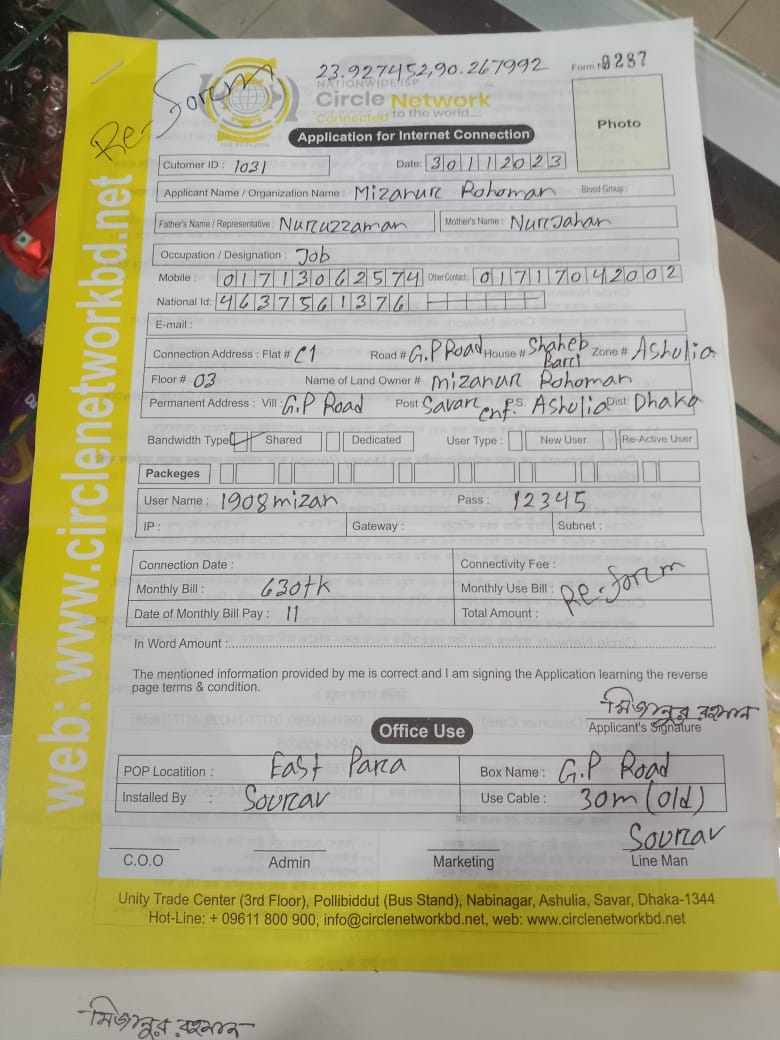 23.927452,90.267992
Form No 9287
Re-Sorum
NATIONWIDE ISP
Circle Network
Connected to the world...
Photo
Application for Internet Connection
Cutomer ID : 1031 Date: 30112023
Applicant Name / Organization Name : Mizanur Rohoman Blood Group :
Father's Name / Representative : Nuruzzaman Mother's Name : NurJahan
Occupation / Designation : Job
Mobile : 01713062574 Other Contact : 01717042002
National Id: 4637561376
E-mail :
Connection Address : Flat # C1 Road # G.P Road House # Shaheb Barri Zone # Ashulia
Floor # 03 Name of Land Owner # mizanur Rohoman
Permanent Address : Vill G.P Road Post Savar Cnt P.S. Ashulia Dist: Dhaka
Bandwidth Type Shared Dedicated User Type : New User Re-Active User
Packeges
User Name : 1908mizan Pass : 12345
IP : Gateway : Subnet :
Connection Date : Connectivity Fee :
Monthly Bill : 630tk Monthly Use Bill : Re-Sorum
Date of Monthly Bill Pay : 11 Total Amount :
In Word Amount :
The mentioned information provided by me is correct and I am signing the Application learning the reverse
page terms & condition.
মিজানুর রহমান
Applicant's Signature
Office Use
POP Locatition : East Para Box Name : G.P Road
Installed By : Sourav Use Cable : 30m (old)
Sourav
C.O.O Admin Marketing Line Man
Unity Trade Center (3rd Floor), Pollibiddut (Bus Stand), Nabinagar, Ashulia, Savar, Dhaka-1344
Hot-Line: + 09611 800 900, info@circlenetworkbd.net, web: www.circlenetworkbd.net
web: www.circlenetworkbd.net
মিজানুর রহমান